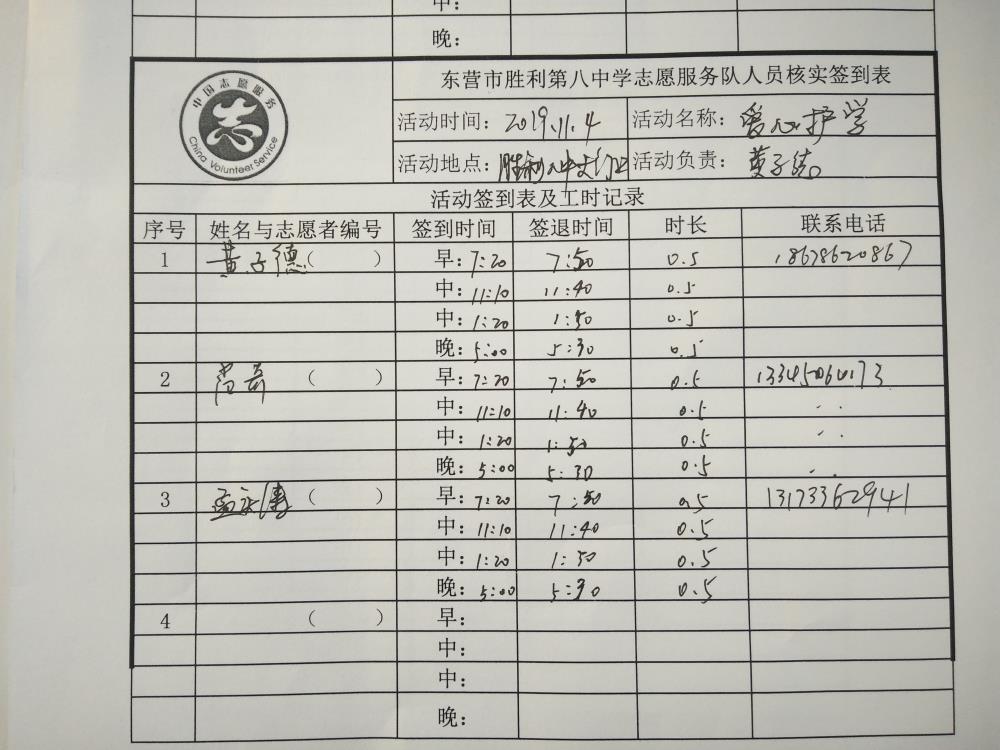 中：
晚：
中国志愿服务
China Volunteer Service
东营市胜利第八中学志愿服务队人员核实签到表
活动时间： 2019.11.4 活动名称： 爱心护学
活动地点： 胜利八中 活动负责： 黄子德
活动签到表及工时记录
序号 姓名与志愿者编号 签到时间 签退时间 时长 联系电话
1 黄子德（ ） 早：7:20 7:50 0.5 18678620867
中：11:10 11:40 0.5
中：1:20 1:50 0.5
晚：5:00 5:30 0.5
2 （ ） 早：7:20 7:50 0.5
中：11:10 11:40 0.5
中：1:20 1:50 0.5
晚：5:00 5:30 0.5
3 （ ） 早：7:20 7:50 0.5 13173362941
中：11:10 11:40 0.5
中：1:20 1:50 0.5
晚：5:00 5:30 0.5
4 （ ） 早：
中：
中：
晚：